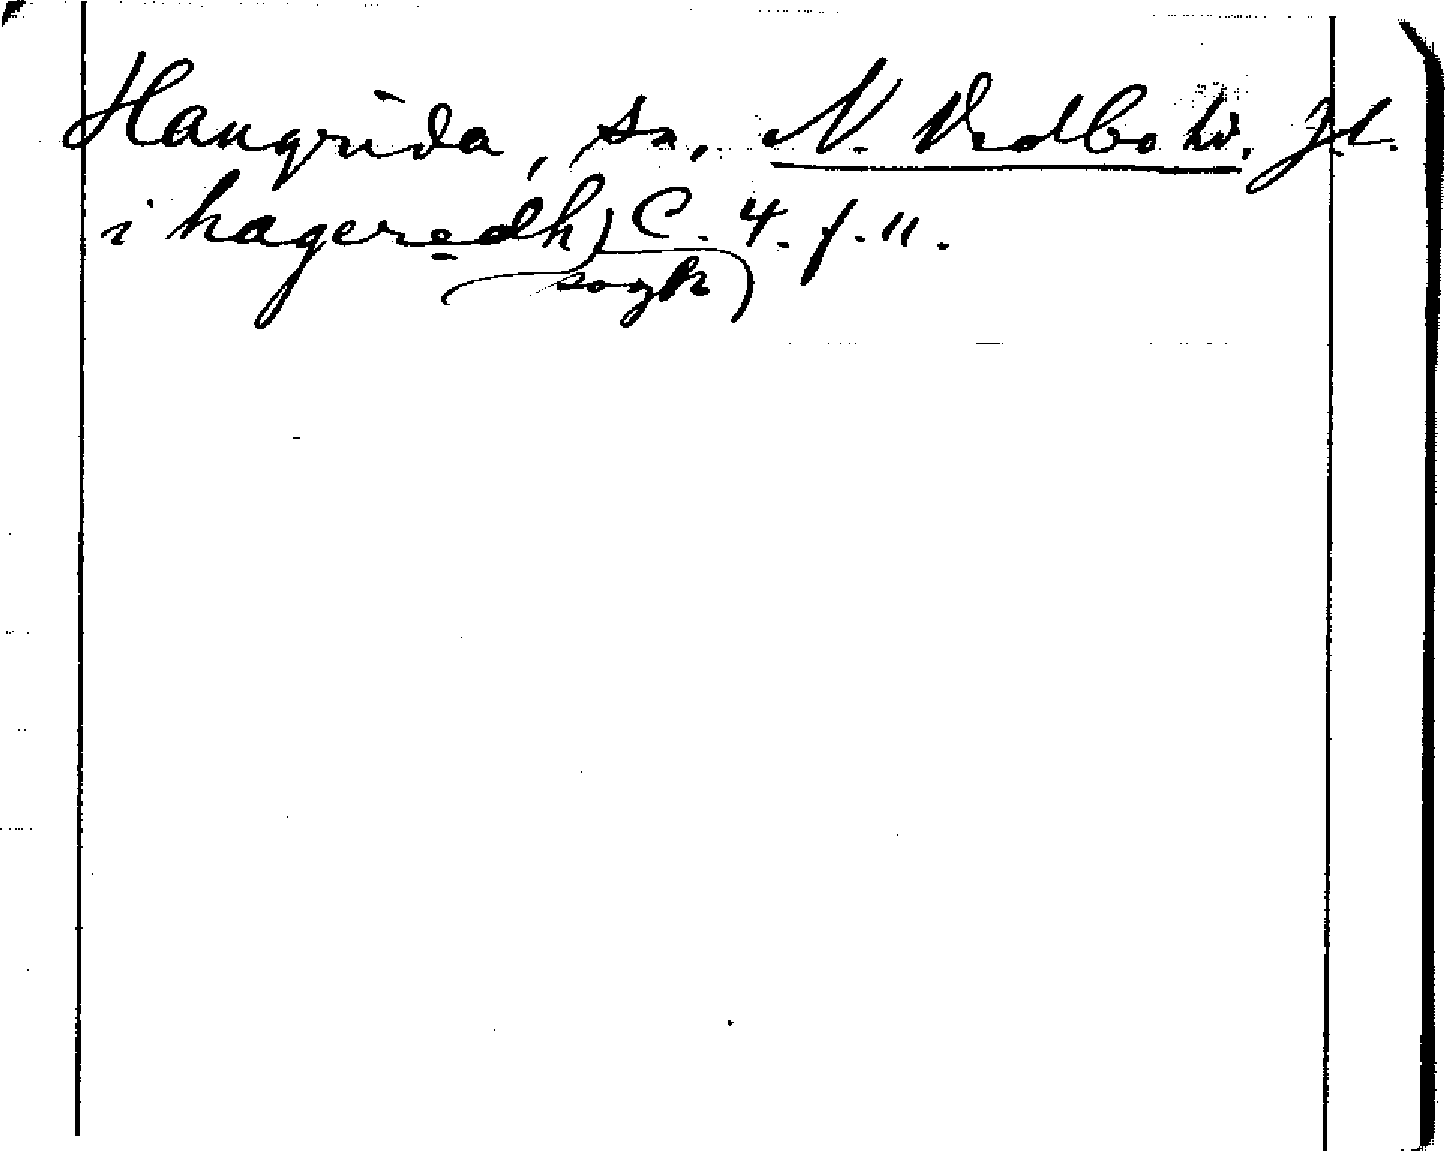 Hangrida, sn, N. Vedbo hd. Jkl.
i hageredh) C. 4. f. 11.
sogk)